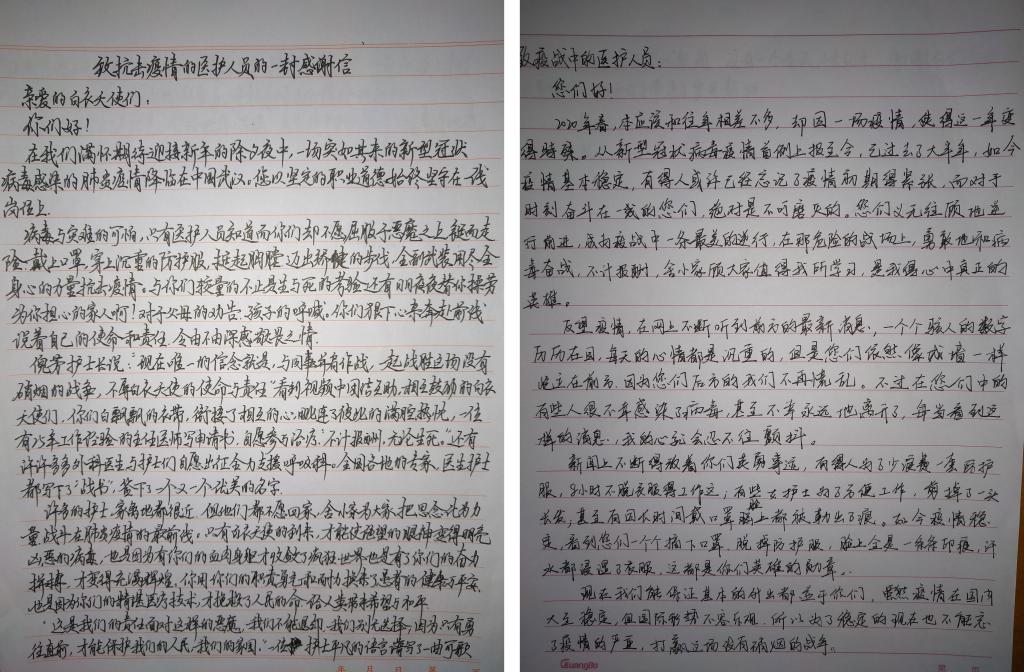 致抗击疫情的医护人员的一封感谢信
亲爱的白衣天使们：
你们好！
在我们满怀期待迎接新年的除夕夜中，一场突如其来的新型冠状
病毒感染的肺炎疫情降临在中国武汉。您以坚定的职业道德始终坚守在一线
岗位上.
病毒与灾难的可怕，只有医护人员知道而你们却不愿屈服于恶魔之上铤而走
险.戴上口罩,穿上沉重的防护服，挺起胸膛迈出矫健的步伐,全副武装用尽全
身心的力量抗击疫情。与你们较量的不止是生与死的考验还有日夜替你操劳
为你担心的家人啊！对于父母的劝告.孩子的呼喊。你们狠下心来奔赴前线
说着自己的使命和责任.令由不由深感敬畏之情.
护士长说："现在唯一的信念就是，与同事并肩作战，一起战胜这场没有
硝烟的战争，不辱白衣天使的使命与责任"看到视频中团结互助,相互鼓励的白衣
天使们，你们白飘飘的衣带，衔接了相互的心.眦连了彼此的满腔热忱，一位
有25年工作经验的主任医师写申请书，自愿参与治疗."不计报酬,无论生死。"还有
许许多多外科医生与护士们自愿出征全力支援呼吸科。全国各地的专家.医生护士
都写下了"战书".签下了一个又一个沉美的名字.
许多的护士，离离地都很近，但他们都不愿回家，舍小家为大家.把思念化为力
量战斗在肺炎疫情的最前线，只有白衣天使的到来，才能使绝望的眼神变得明亮
凶恶的病毒，也是因为有你们的血肉身躯才收敛了疯狂.世界也是有了你们的奋力
拼搏，才变得充满辉煌，你用你们的职责身先和耐力.换来了患者的健康与平安，
也是因为你们的精湛医疗技术，才挽救了人民的命.给人类带来希望与和平
"这是我们的责任面对这样的恶魔，我们不能退却,我们别无选择，因为只有勇
往直前，才能保护我们的人民，我们的家园."一位护士平凡的语言谱写了一曲可歌
年 月 日 第 页
致疫战中的医护人员：
您们好！
2020年春，本应该和往年相差不多，却因一场疫情，使得这一年变
得特殊。从新型冠状病毒疫情首例上报至今，已过去了大半年，如今
疫情基本稳定，有得人或许已经忘记了疫情初期得紧张，而对于
时刻奋斗在一线的您们，绝对是不可磨灭的。您们义无反顾地逆
行前进，成为疫战中一条最美的逆行，在那危险的战场上，勇敢地和病
毒奋战，不计报酬，舍小家顾大家值得我所学习，是我得心中真正的
英雄。
反思疫情，在网上不断听到前方的最新消息，一个个骇人的数字
历历在目，每天的心情都是沉重的，但是您们依然像城墙一样
屹立在前方，因为您们后方的我们不再慌乱。不过在您们中的
有些人很不幸感染了病毒，甚至不幸永远地离开了，每当看到这
样的消息，我的心就会忍不住颤抖。
新闻上不断得放着你们英勇事迹，有得人为了少浪费一套防护
服，8小时不脱衣服得工作这，有些女护士为了方便工作，剪掉了一头
长发，甚至有因长时间戴口罩脸上都被勒出了痕。如今疫情稳
定，看到您们一个个摘下口罩，脱掉防护服，脸上全是一条条印痕，汗
水都浸湿了衣服，这都是你们英雄的勋章。
现在我们能保证基本的外出都选于你们，虽然疫情在国内
大至稳定，但国际形势不容乐观，所以为了稳定的现在也不能忘
了疫情的严重，打赢这场没有硝烟的战争。
GuangBo
第 页